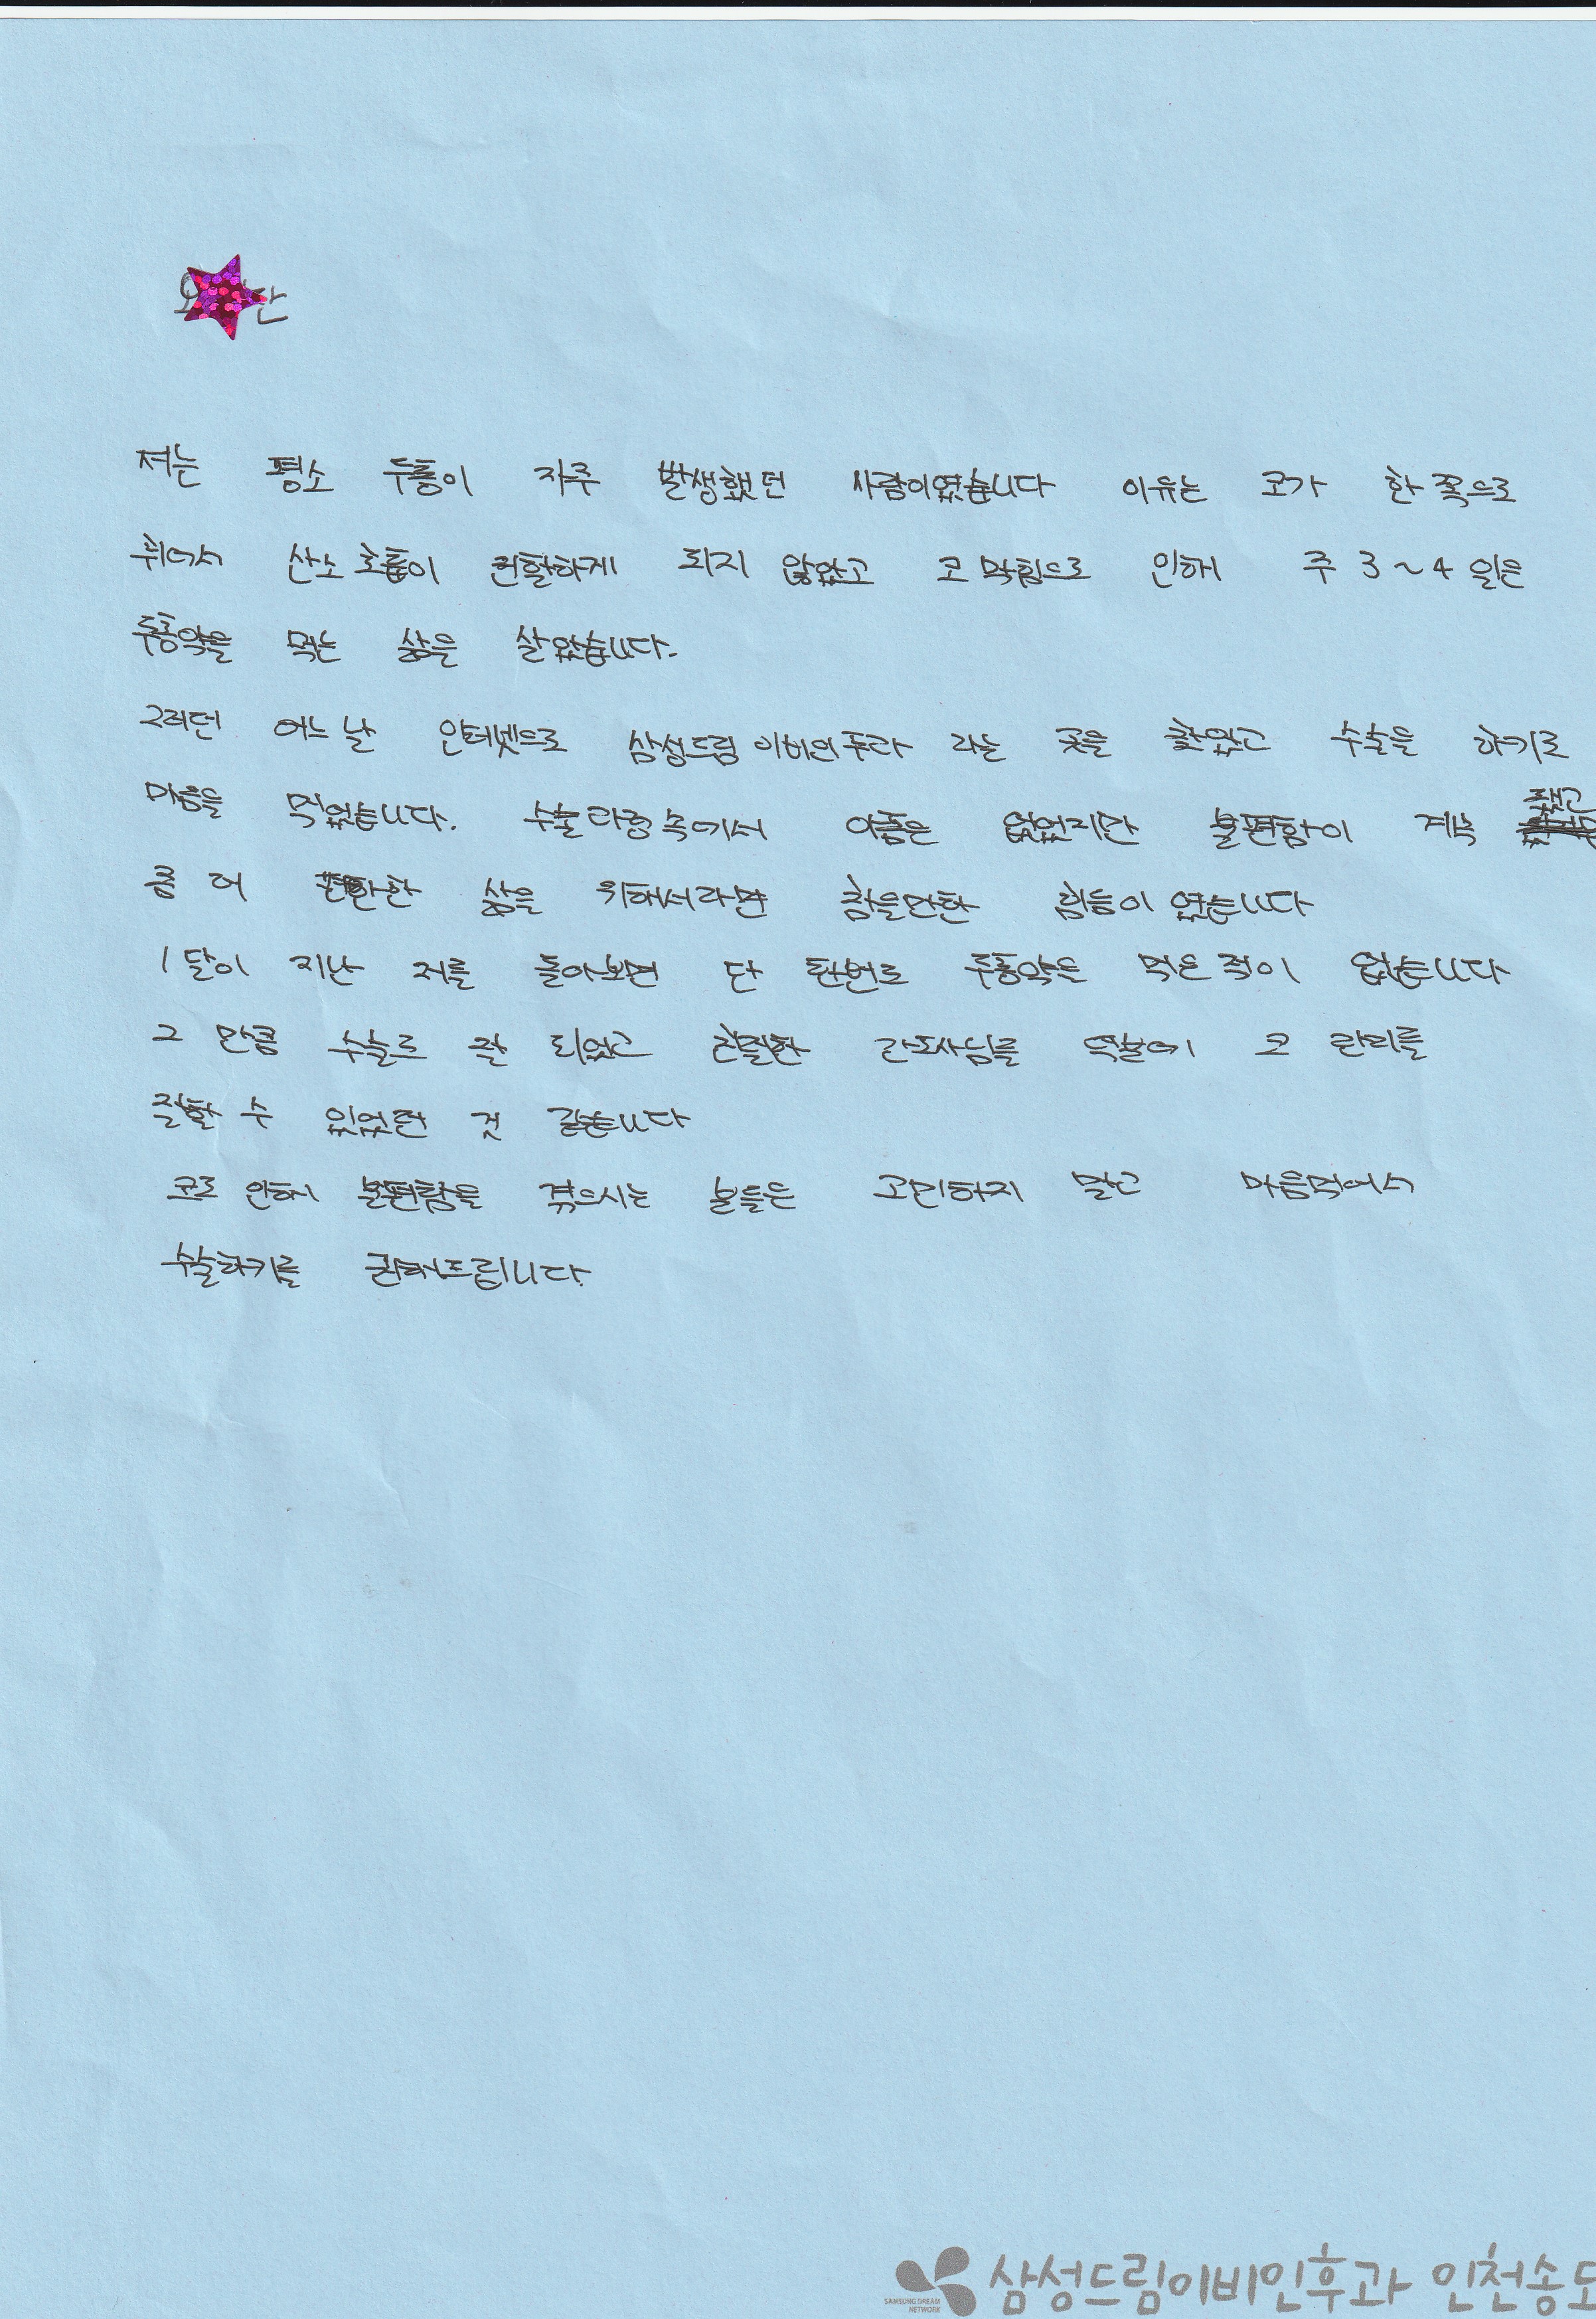 저는 평소 두통이 자주 발생했던 사람이였습니다 이유는 코가 한쪽으로
휘어서 산소호흡이 원활하게 되지 않았고 코막힘으로 인해 주 3~4일은
두통약을 먹는 삶을 살았습니다.
그러던 어느날 인터넷으로 삼성드림이비인후과 라는 곳을 찾았고 수술을 하기로
마음을 먹었습니다. 수술과정속에서 아픔은 없었지만 불편함이 계속 됐고
좀 더 편안한 삶을 위해서라면 참을만한 힘듬이였습니다
1달이 지난 저를 돌아보면 단 한번도 두통약을 먹은적이 없습니다
그 만큼 수술도 잘 되었고 친절한 간호사님들 덕분에 코 관리를
잘할 수 있었던 것 같습니다
코로 인해 불편함을 겪으시는 분들은 고민하지 말고 마음먹어서
수술하기를 권해드립니다.
삼성드림이비인후과 인천송도
SAMSUNG DREAM
NETWORK